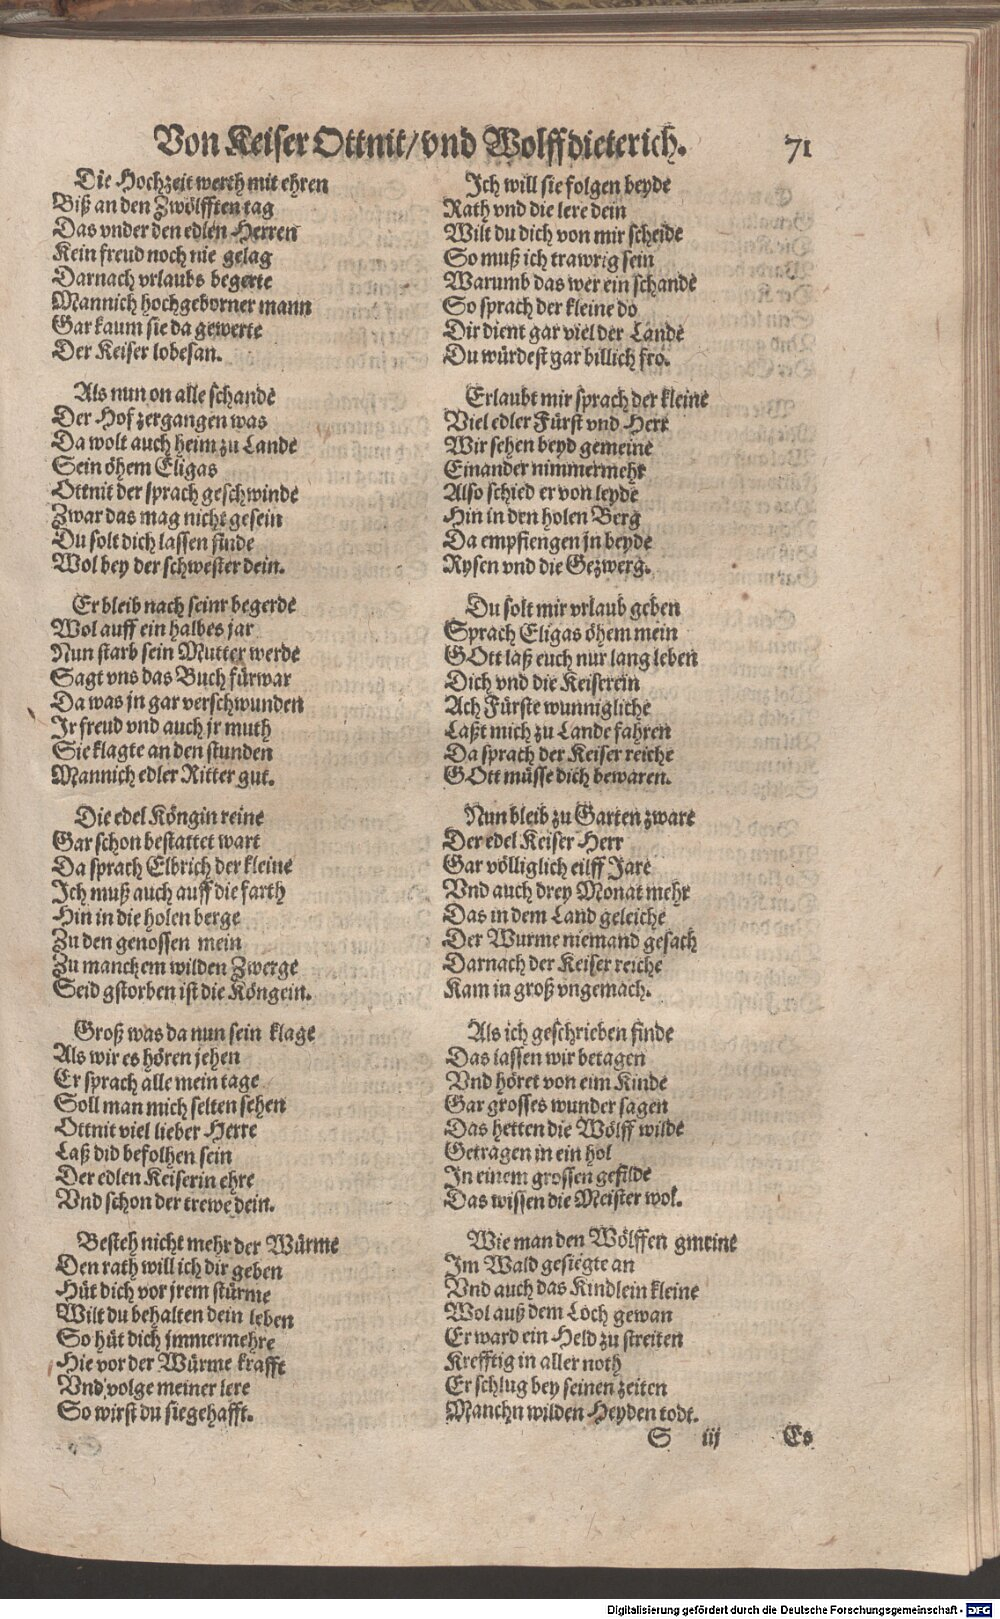 Von Keiser Ottnit/ vnd Wolffdieterich. 71
Die Hochzeit werth mit ehren
Biß an den Zwölfften tag
Das vnder den edlen Herren
Kein freud noch nie gelag
Darnach vrlaubs begerte
Mannich hochgeborner mann
Gar kaum sie da gewerte
Der Keiser lobesan.
Als nun on alle schande
Der Hof zergangen was
Da wolt auch heim zu Lande
Sein öhem Eligas
Ottnit der sprach geschwinde
Zwar das mag nicht gesein
Du solt dich lassen finde
Wol bey der schwester dein.
Er bleib nach seinr begerde
Wol auff ein halbes jar
Nun starb sein Mutter werde
Sagt vns das Buch fürwar
Da was jn gar verschwunden
Ir freud vnd auch jr muth
Sie klagte an den stunden
Mannich edler Ritter gut.
Die edel Köngin reine
Gar schon bestattet wart
Da sprach Elbrich der kleine
Ich muß auch auff die farth
Hin in die holen berge
Zu den genossen mein
Zu manchem wilden Zwerge
Seid gstorben ist die Köngein.
Groß was da nun sein klage
Als wir es hören jehen
Er sprach alle mein tage
Soll man mich selten sehen
Ottnit viel lieber Herre
Laß did befolhen sein
Der edlen Keiserin ehre
Vnd schon der trewe dein.
Besteh nicht mehr der Würme
Den rath will ich dir geben
Hüt dich vor jrem stürme
Wilt du behalten dein leben
So hüt dich jmmermehre
Hie vor der Würme krafft
Vnd volge meiner lere
So wirst du siegehafft.
Ich will sie folgen beyde
Rath vnd die lere dein
Wilt du dich von mir scheide
So muß ich trawrig sein
Warumb das wer ein schande
So sprach der kleine do
Dir dient gar viel der Lande
Du würdest gar billich fro.
Erlaubt mir sprach der kleine
Viel edler Fürst vnd Herr
Wir sehen beyd gemeine
Einander nimmermehr
Also schied er von leyde
Hin in den holen Berg
Da empfiengen jn beyde
Rysen vnd die Gezwerg.
Du solt mir vrlaub geben
Sprach Eligas öhem mein
GOtt laß euch nur lang leben
Dich vnd die Keiserein
Ach Fürste wunnigliche
Laßt mich zu Lande fahren
Da sprach der Keiser reiche
GOtt müsse dich bewaren.
Nun bleib zu Garten zware
Der edel Keiser Herr
Gar völliglich eilff Jare
Vnd auch drey Monat mehr
Das in dem Land geleiche
Der Wurme niemand gesach
Darnach der Keiser reiche
Kam in groß vngemach.
Als ich geschrieben finde
Das lassen wir betagen
Vnd höret von eim Kinde
Gar grosses wunder sagen
Das hetten die Wölff wilde
Getragen in ein hol
In einem grossen gefilde
Das wissen die Meister wol.
Wie man den Wölffen gmeine
Im Wald gesiegte an
Vnd auch das Kindlein kleine
Wol auß dem Loch gewan
Er ward ein Held zu streiten
Krefftig in aller noth
Er schlug bey seinen zeiten
Manchn wilden Heyden todt.
S iij Es
Digitalisierung gefördert durch die Deutsche Forschungsgemeinschaft - DFG